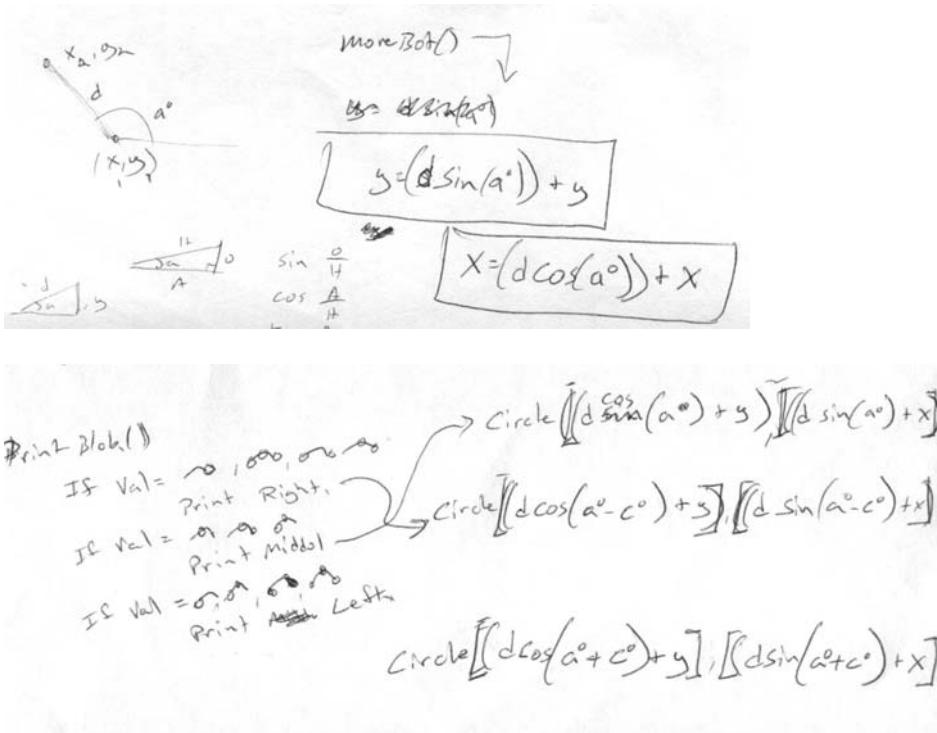 x₂, y₂
d
a°
(x, y)
moveBot()
y=(d sin(a°)) + y
x=(d cos(a°)) + x
H
a
O
A
sin O/H
cos A/H
d
a
y
Print Blob()
If Val =
Print Right.
If Val =
Print Middol
If Val =
Print Left.
Circle[[(d cos(a°) + y)],[(d sin(a°) + x]
Circle[[d cos(a°-c°) + y],[[d sin(a°-c°) + x]
Circle[[d cos(a°+c°) + y],[[d sin(a°+c°) + x]